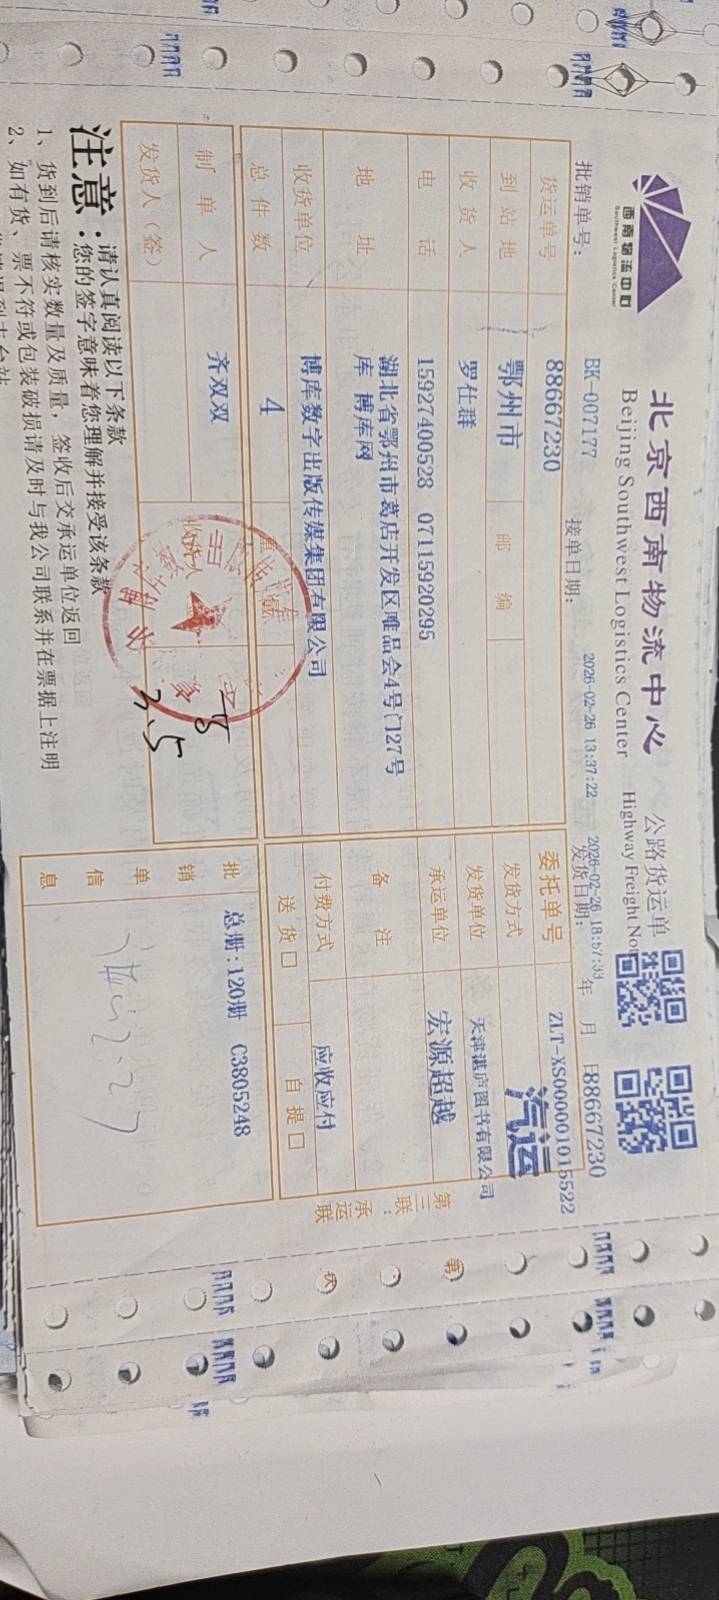 西南物流中心
Southwest Logistics Center
北京西南物流中心 公路货运单
Beijing Southwest Logistics Center Highway Freight Not
批销单号: BK-007177 接单日期: 2026-02-26 13:37:22 2026-02-26 18:57:33 发货日期: 年 月 日 88667230
货运单号 88667230 委托单号 ZLT-XS000001015522
到站地 鄂州市 邮编 发货方式 汽运
收货人 罗仕群 发货单位 天津湛庐图书有限公司
电话 15927400528 07115920295 承运单位 宏源超越
地址 湖北省鄂州市葛店开发区唯品会4号门27号
库 博库网 备注
收货单位 博库数字出版传媒集团有限公司 付费方式 应收应付
总件数 4 重量 送货□ 自提□
制单人 齐双双 收货人
发货人(签) 3.5
批销单信息 总册:120册 C3805248
第三联:承运联
注意:请认真阅读以下条款
您的签字意味着您理解并接受该条款
1、货到后请核实数量及质量,签收后交承运单位返回
2、如有货、票不符或包装破损请及时与我公司联系并在票据上注明